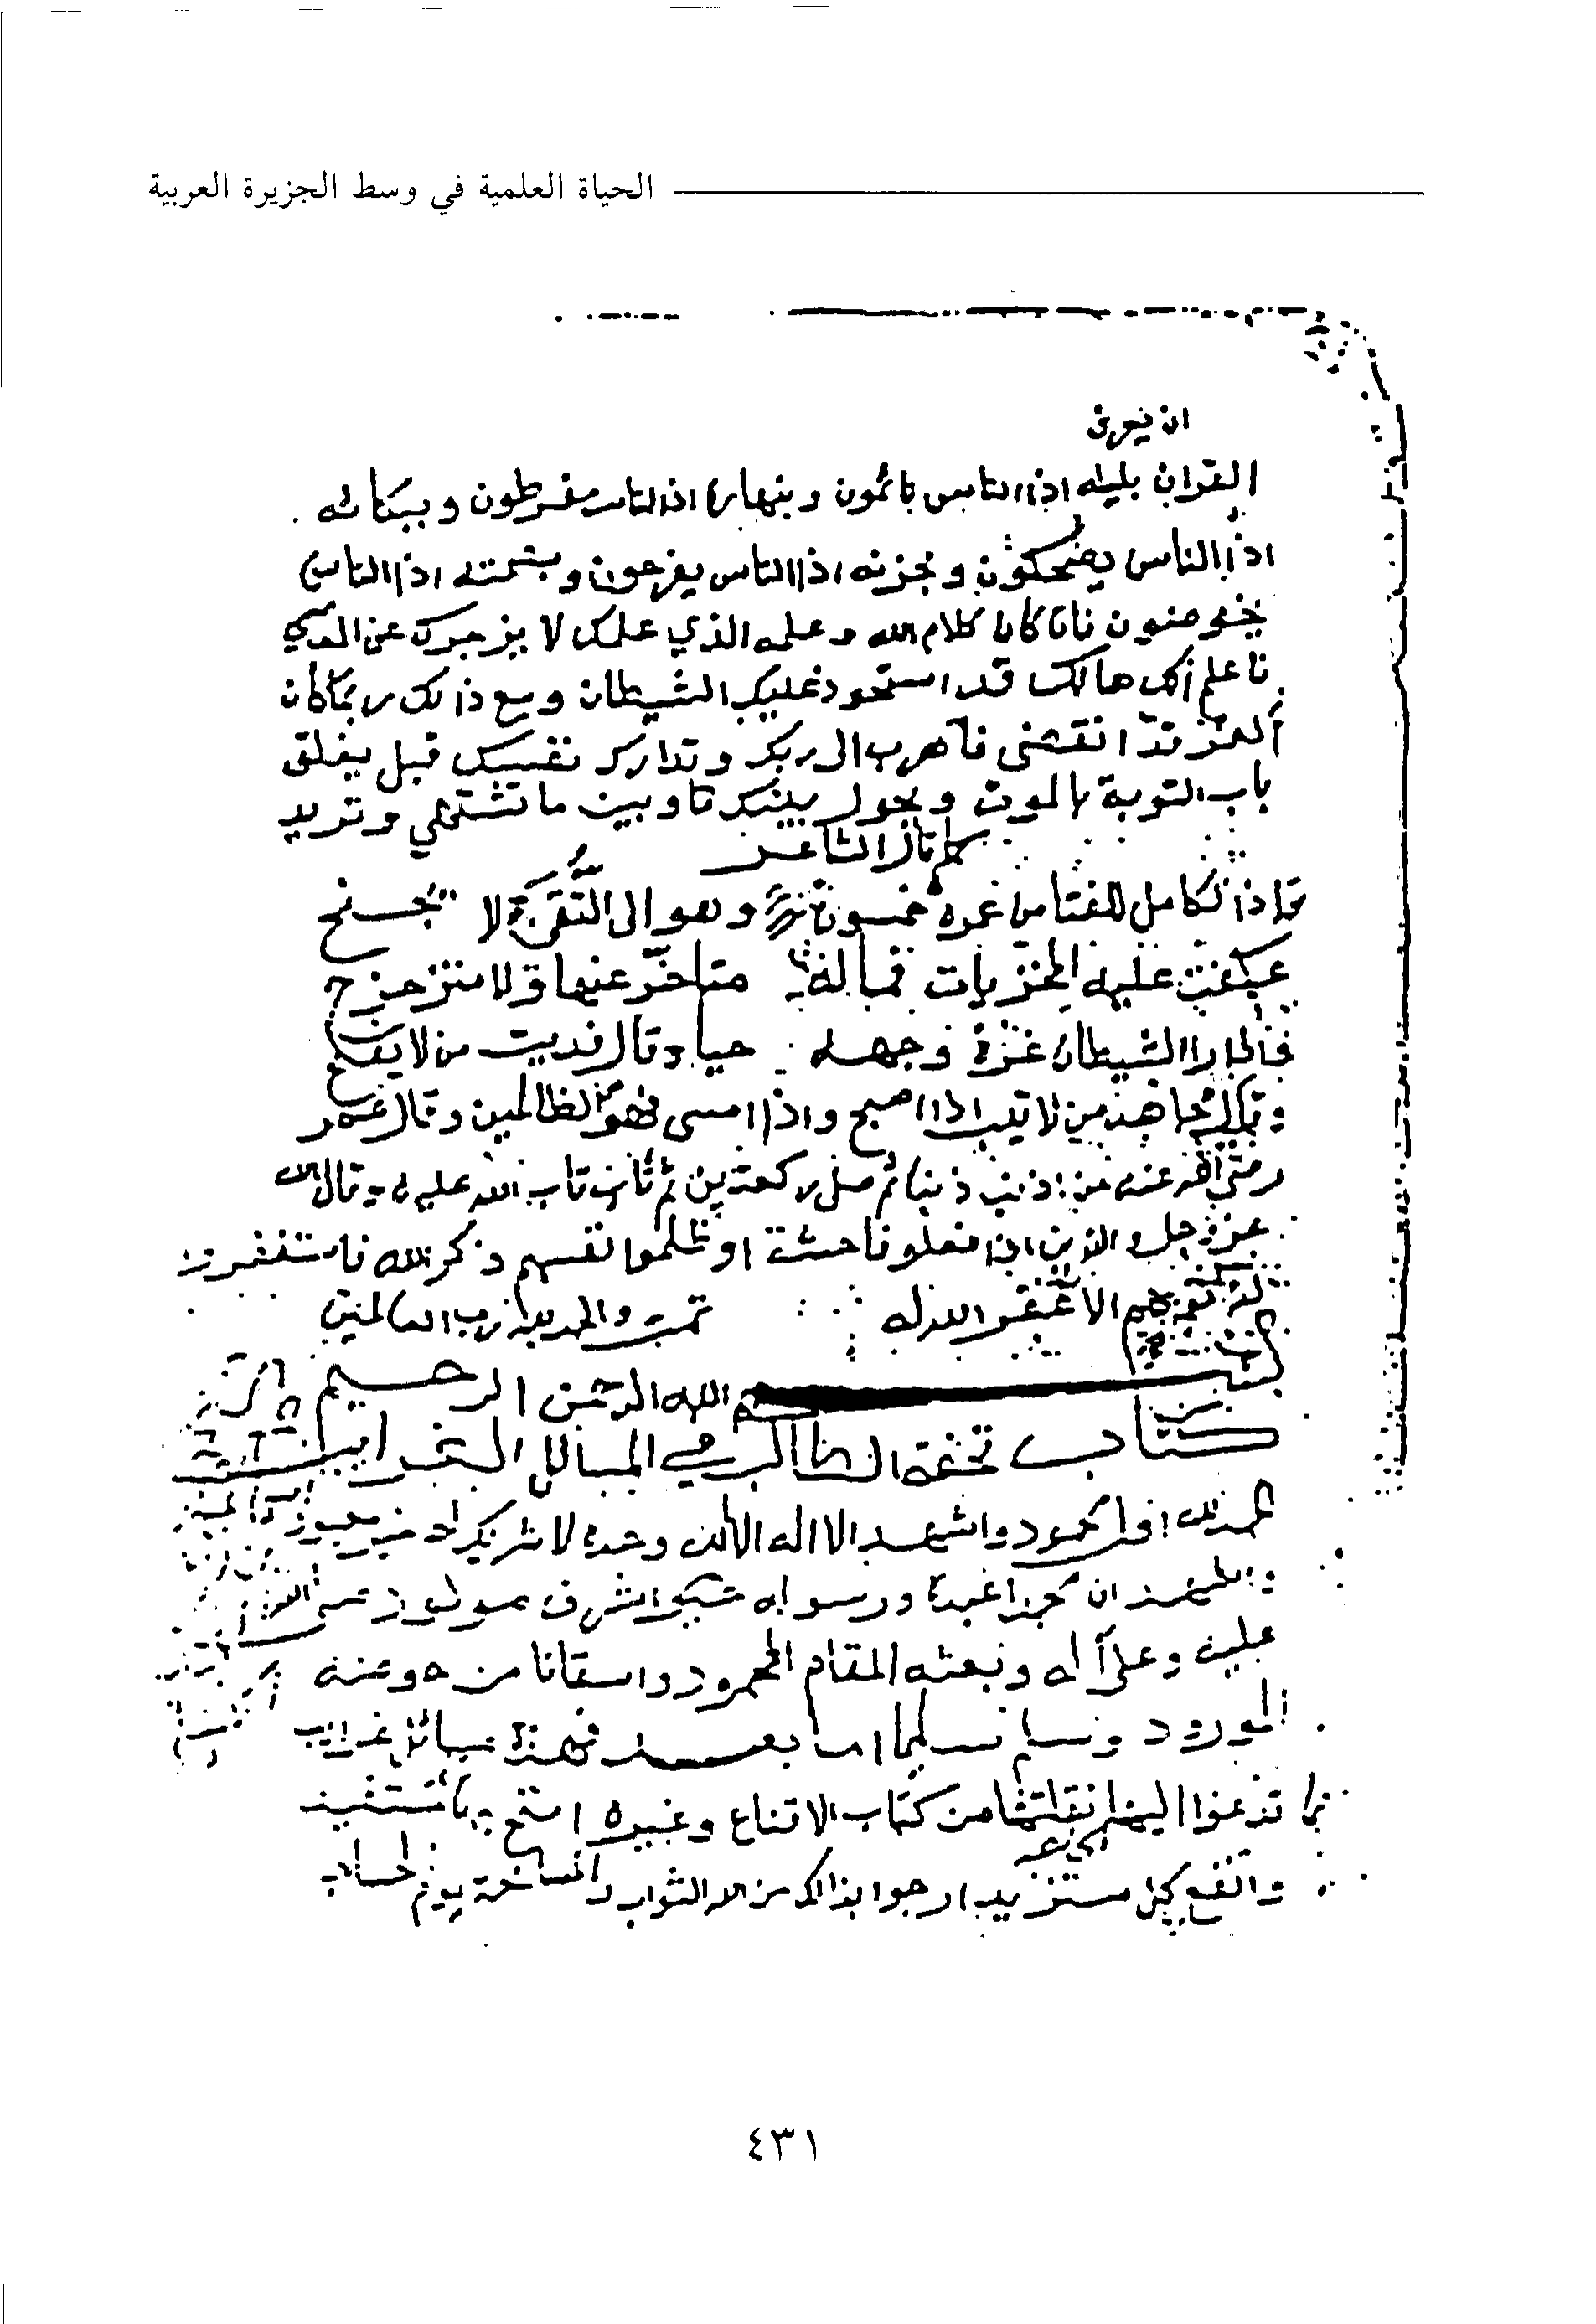 الحياة العلمية في وسط الجزيرة العربية
ان يعرف
القران بليله اذا الناس نائمون وبنهاره اذا الناس مفرطون وببكائه
اذا الناس يضحكون وبحزنه اذا الناس يفرحون وبصمته اذا الناس
يخوضون فاذا كان كلام الله وعلمه الذي علمك لا يزجرك عن المعاصي
فاعلم انك هالك قد استحوذ عليك الشيطان ومع ذالك ربما كان
العمر قد انقضى فاهرب الى ربك وتدارك نفسك قبل يغلق
باب التوبة بالموت ويحول بينك وبين ما تشتهي وتريد
كما قال الشاعر
واذا تكامل للفتا من عمره خمسون وهو الى التقى لا يجنح
عكفت عليه المخزيات فما له متاخر عنها ولا متزحزح
فاذا را الشيطان غرة وجهه حيا وقال فديت من لا يفلح
وقال مجاهد من لا يتب اذا اصبح واذا امسى فهو من الظالمين وقال عمر
رضي الله عنه من اذنب ذنبا ثم صلى ركعتين ثم تاب تاب الله عليه وقال الله
عز وجل والذين اذا فعلو فاحشة او ظلموا نفسهم ذكر الله فاستغفروا
لذنوبهم الا غفر الله له تمت والحمد لله رب العالمين
بسم الله الرحمن الرحيم
كتاب تحفة الطالب في المسائل الغرايب
الحمد لله واشهد الا اله الا الله وحده لا شريك له
واشهد ان محمدا عبده ورسوله اشرف مولود
عليه وعلى اله وبعثه المقام المحمود واسقانا من حوضه
المورود وسلم تسليما اما بعد فهذه مسائل غرايب
نقلتها من كتاب الاقناع وغيره
وانفع كل مستزيد ارجوا بذالك من الله الثواب والمسامحة يوم الحساب
٤٣١